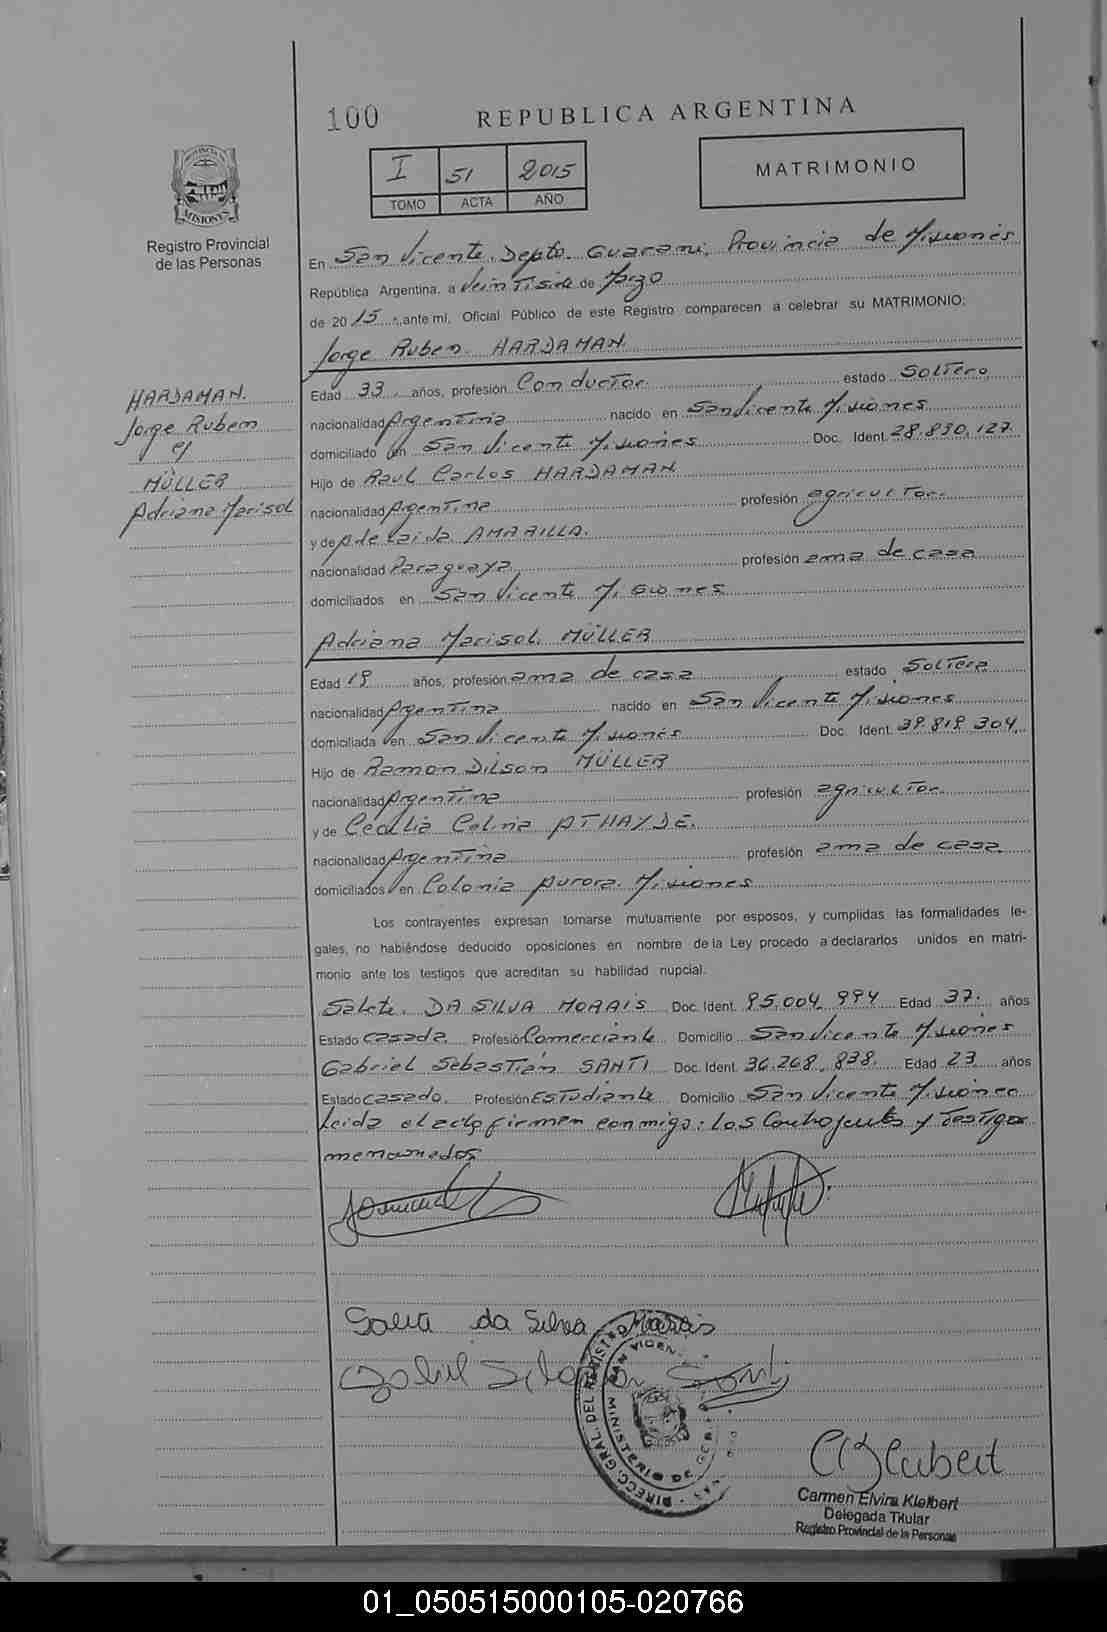 100 REPUBLICA ARGENTINA
I 51 2015
TOMO ACTA AÑO
MATRIMONIO
Registro Provincial
de las Personas
HARDAMAN.
Jorge Ruben
c/
MÜLLER
Adriana Marisol
En San Vicente, Depto. Guarani, Provincia de Misiones
República Argentina, a Veintisiete de Marzo
de 2015, ante mi, Oficial Público de este Registro comparecen a celebrar su MATRIMONIO:
Jorge Ruben HARDAMAN
Edad 33. años, profesión Conductor estado Soltero
nacionalidad Argentina nacido en San Vicente Misiones
domiciliado en San Vicente Misiones Doc. Ident. 28.830.127.
Hijo de Raul Carlos HARDAMAN
nacionalidad Argentina profesión agricultor.
y de Adelaida AMARILLA.
nacionalidad Paraguaya profesión ama de casa
domiciliados en San Vicente Misiones
Adriana Marisol MÜLLER
Edad 19 años, profesión ama de casa estado Soltera
nacionalidad Argentina nacido en San Vicente Misiones
domiciliada en San Vicente Misiones Doc. Ident. 39.819.304,
Hijo de Ramon Dilson MÜLLER
nacionalidad Argentina profesión agricultor.
y de Cecilia Celina ATHAYDE.
nacionalidad Argentina profesión ama de casa
domiciliados en Colonia Aurora. Misiones
Los contrayentes expresan tomarse mutuamente por esposos, y cumplidas las formalidades le-
gales, no habiéndose deducido oposiciones en nombre de la Ley procedo a declararlos unidos en matri-
monio ante los testigos que acreditan su habilidad nupcial.
Salete DA SILVA MORAIS Doc. Ident. 95.004.994 Edad 37. años
Estado casada Profesión Comerciante Domicilio San Vicente Misiones
Gabriel Sebastián SANTI Doc. Ident. 36.268.838. Edad 23 años
Estado casado. Profesión Estudiante Domicilio San Vicente Misiones
Leida el acta firmen conmigo: los Contrayentes y Testigos
menamedos
Salete da Silva Morais
Gabriel Sebastian Santi
DIRECC. GRAL. DEL REGISTRO
SAN VICEN
MINISTERIO DE GOB
Carmen Elvira Kleibert
Delegada Titular
Registro Provincial de la Personas
01_050515000105-020766